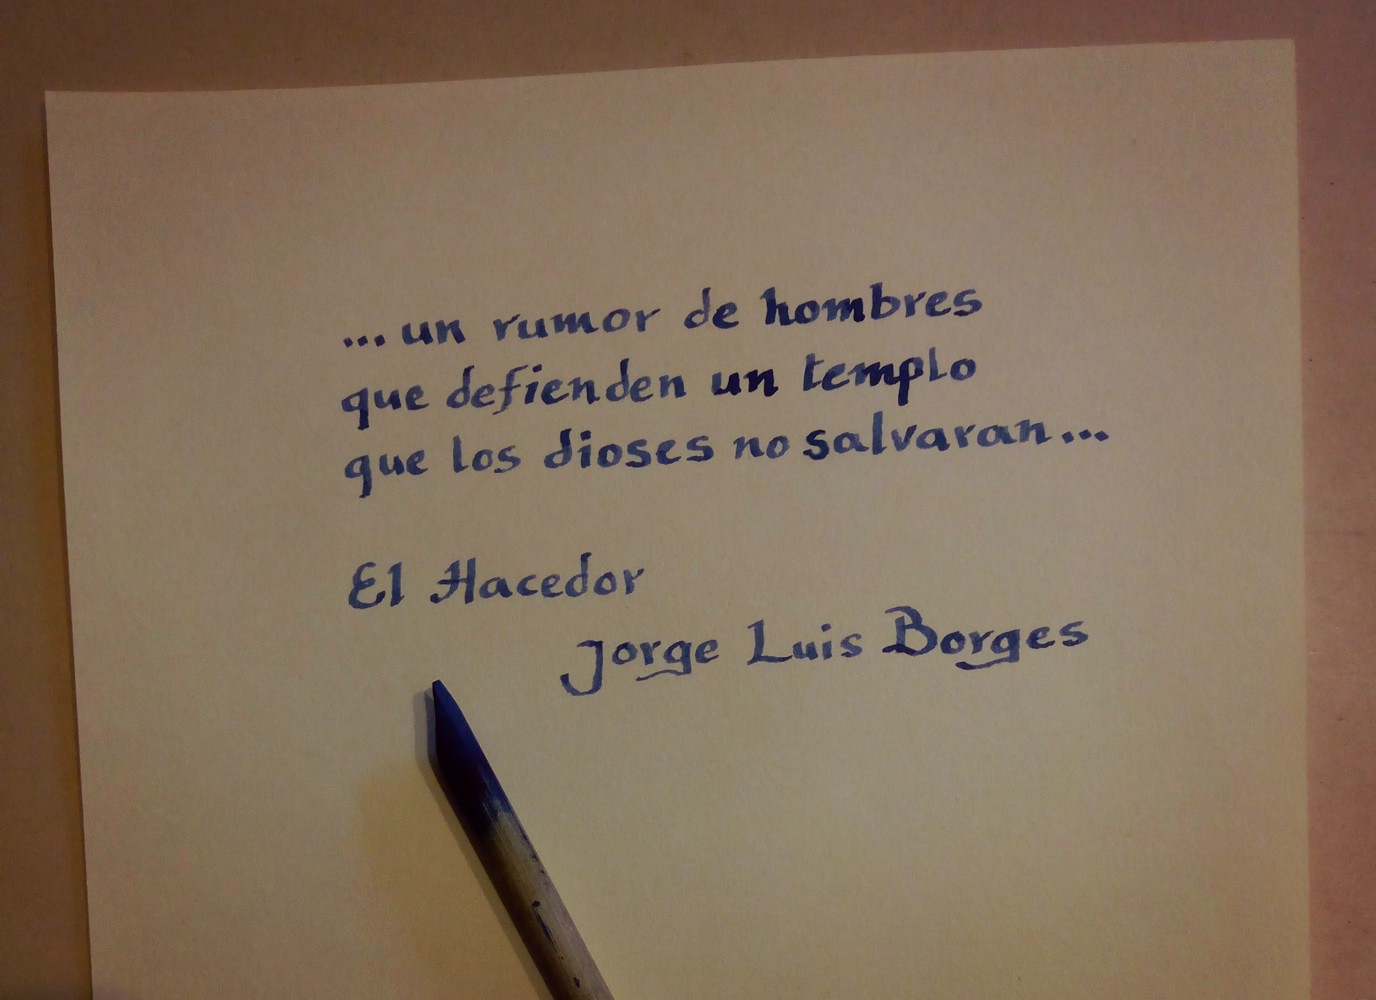 ...un rumor de hombres
que defienden un templo
que los dioses no salvaran...
El Hacedor
Jorge Luis Borges